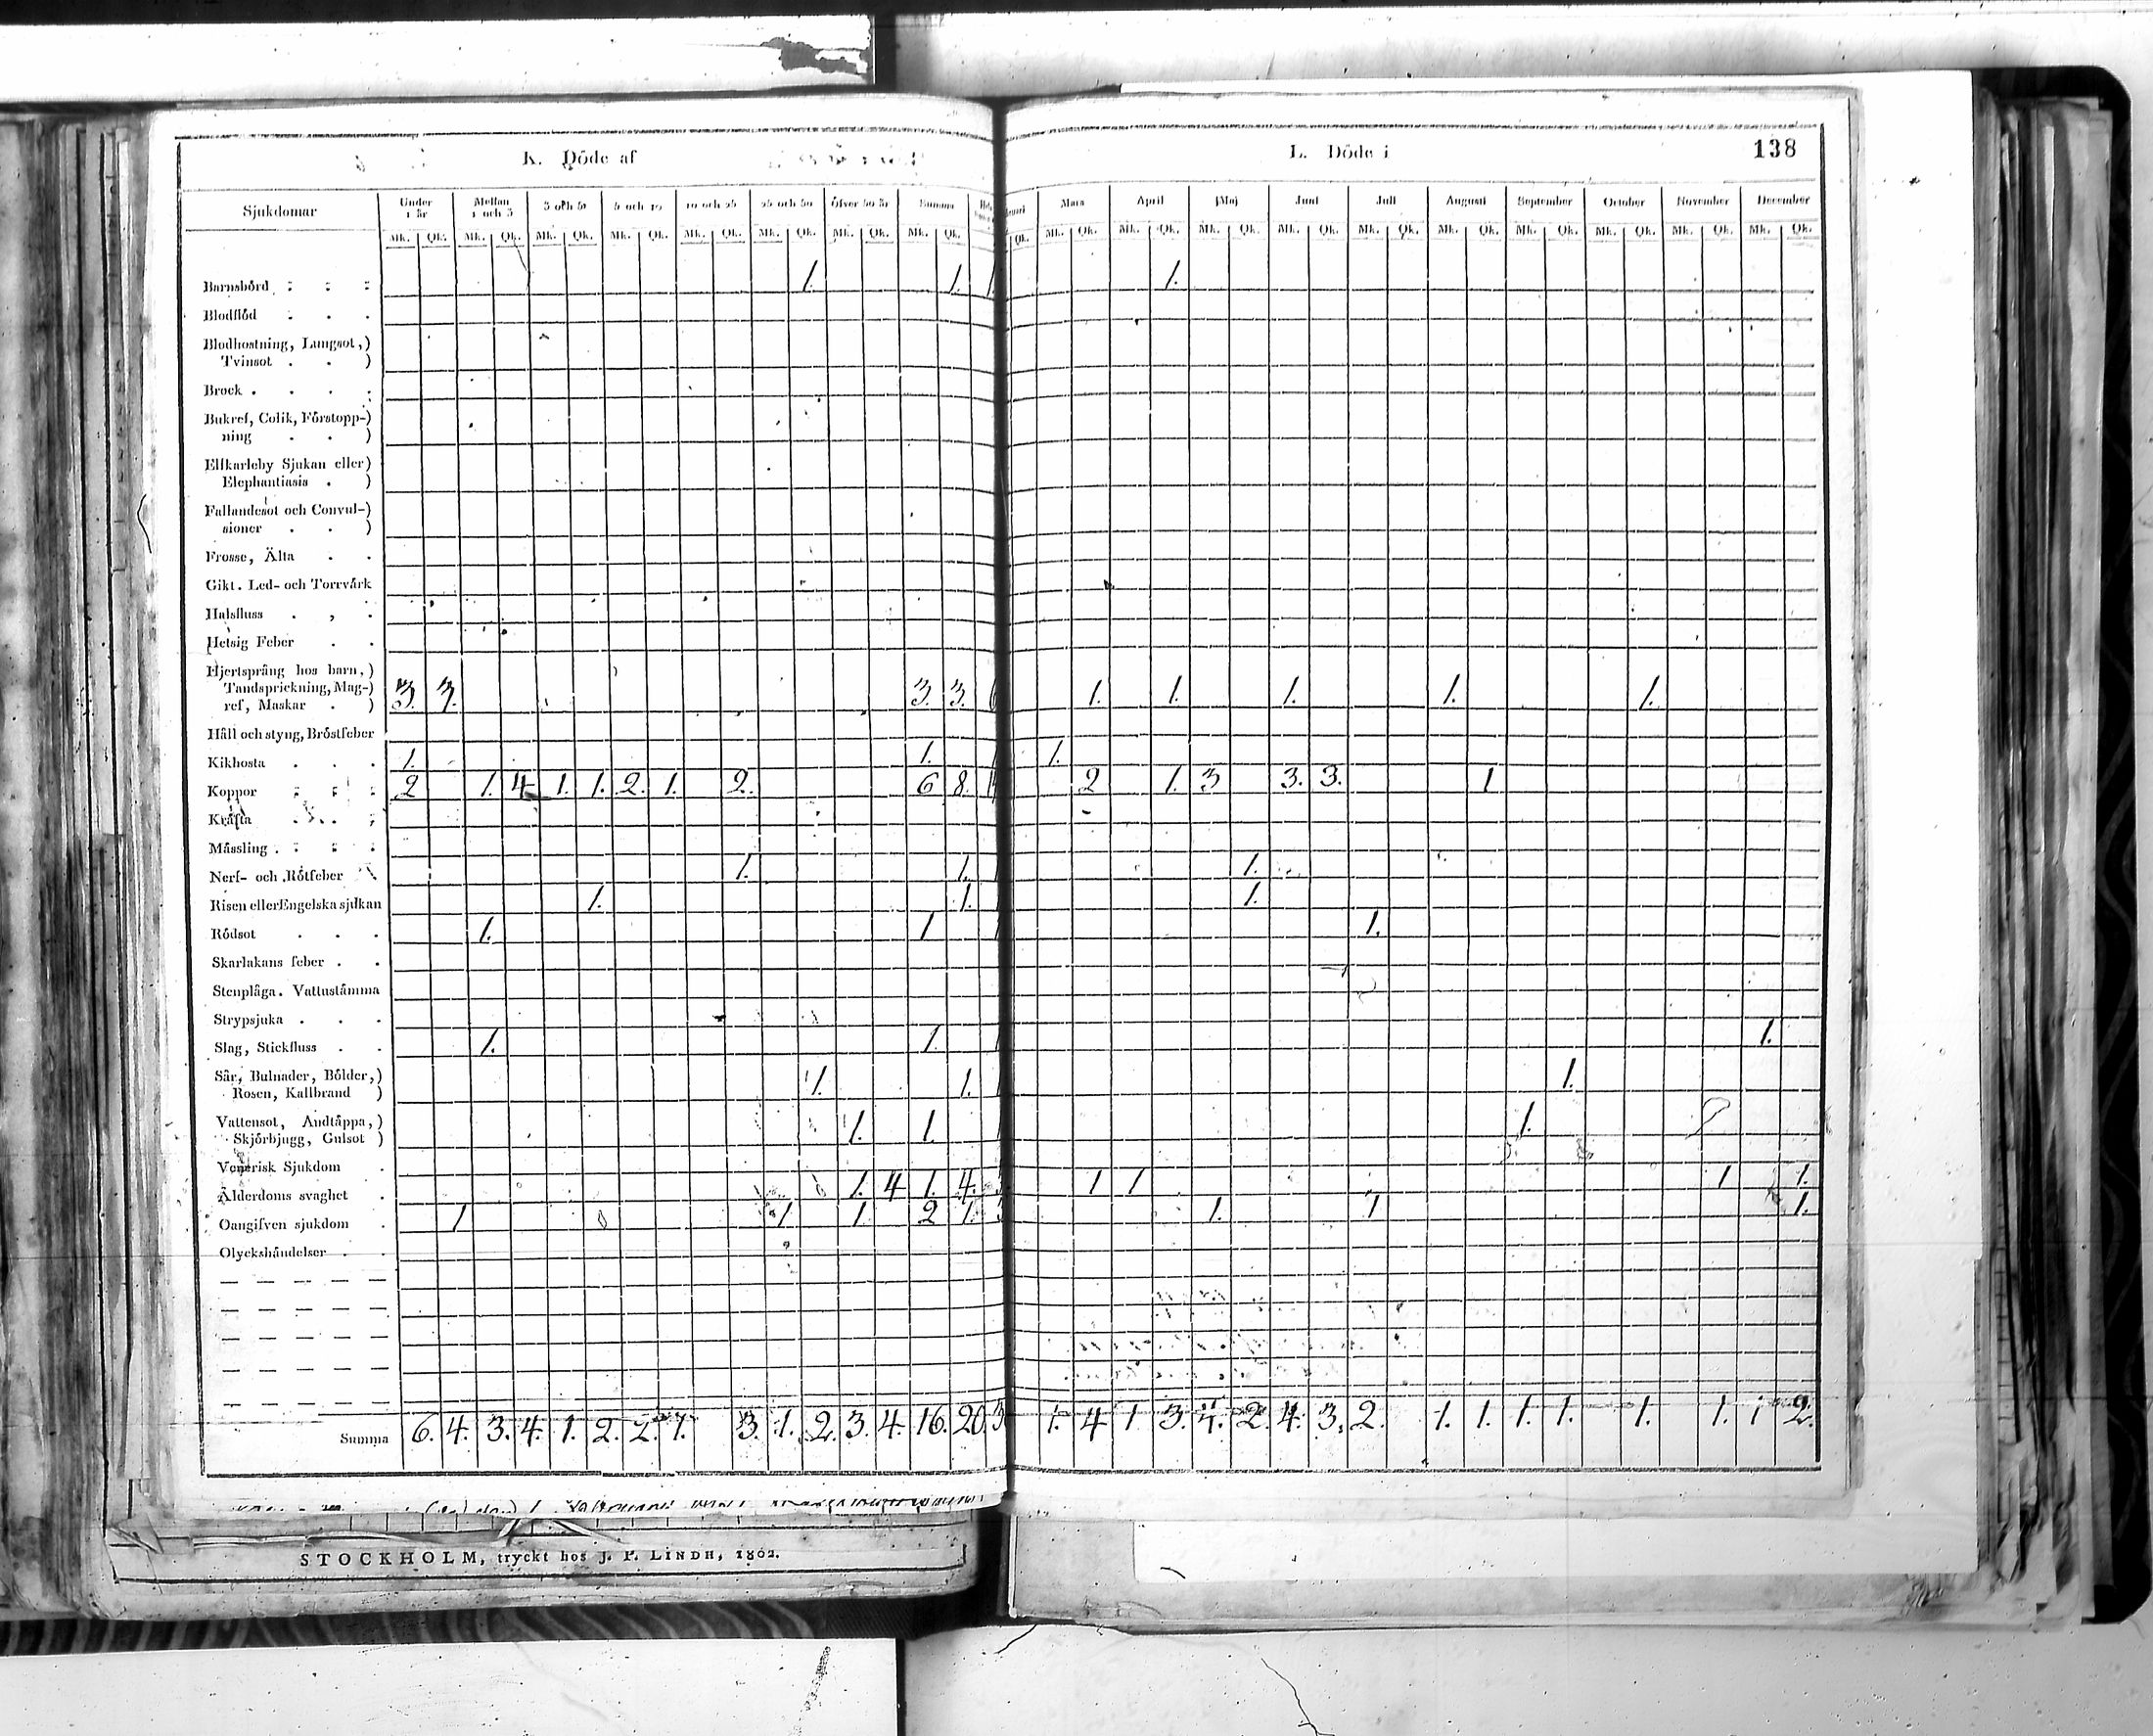 K. Döde af
L. Döde i
138
Sjukdomar
Under 1 år
Mellan 1 och 3
3 och 5
5 och 10
10 och 25
25 och 50
öfver 50 år
Summa
Mars
April
Maj
Juni
Juli
Augusti
September
October
November
December
Mk. Qk. Mk. Qk. Mk. Qk. Mk. Qk. Mk. Qk. Mk. Qk. Mk. Qk. Mk. Qk.
Qk. Mk. Qk. Mk. Qk. Mk. Qk. Mk. Qk. Mk. Qk. Mk. Qk. Mk. Qk. Mk. Qk. Mk. Qk. Mk. Qk.
Barnsbörd 1. 1. 1. 1.
Blodflöd
Blodhostning, Lungsot,)
Tvinsot )
Brock
Bukref, Colik, Förstopp-)
ning )
Elfkarleby Sjukan eller)
Elephantiasis )
Fallandesot och Convul-)
sioner )
Frosse, Älta
Gikt. Led- och Torrvärk
Halsfluss
Hetsig Feber
Hjertsprång hos barn,)
Tandsprickning, Mag-)
ref, Maskar ) 3. 3. 3. 3. 6 1. 1. 1. 1. 1.
Håll och styng, Bröstfeber
Kikhosta 1. 1. 1 1.
Koppor 2 1. 4 1. 1. 2. 1. 2. 6 8. 2 1. 3 3. 3. 1
Kräfta
Mässling
Nerf- och Rötfeber 1. 1. 1 1.
Risen eller Engelska sjukan 1. 1. 1.
Rödsot 1. 1 1 1.
Skarlakans feber
Stenplåga. Vattustämma
Strypsjuka
Slag, Stickfluss 1. 1. 1 1.
Sår, Bulnader, Bölder,)
Rosen, Kallbrand ) 1. 1. 1 1.
Vattensot, Andtäppa,)
Skjörbjugg, Gulsot ) 1. 1. 1 1.
Venerisk Sjukdom
Älderdoms svaghet 1. 4 1. 4. 1 1 1 1.
Oangifven sjukdom 1 1 1. 2 1. 3 1. 1 1.
Olyckshändelser
Summa 6. 4. 3. 4. 1. 2. 2. 1. 3. 1. 2. 3. 4. 16. 20. 3 1. 4 1 3. 4. 2. 4. 3. 2. 1. 1. 1. 1. 1. 1. 1 2.
STOCKHOLM, tryckt hos J. P. LINDH, 1802.